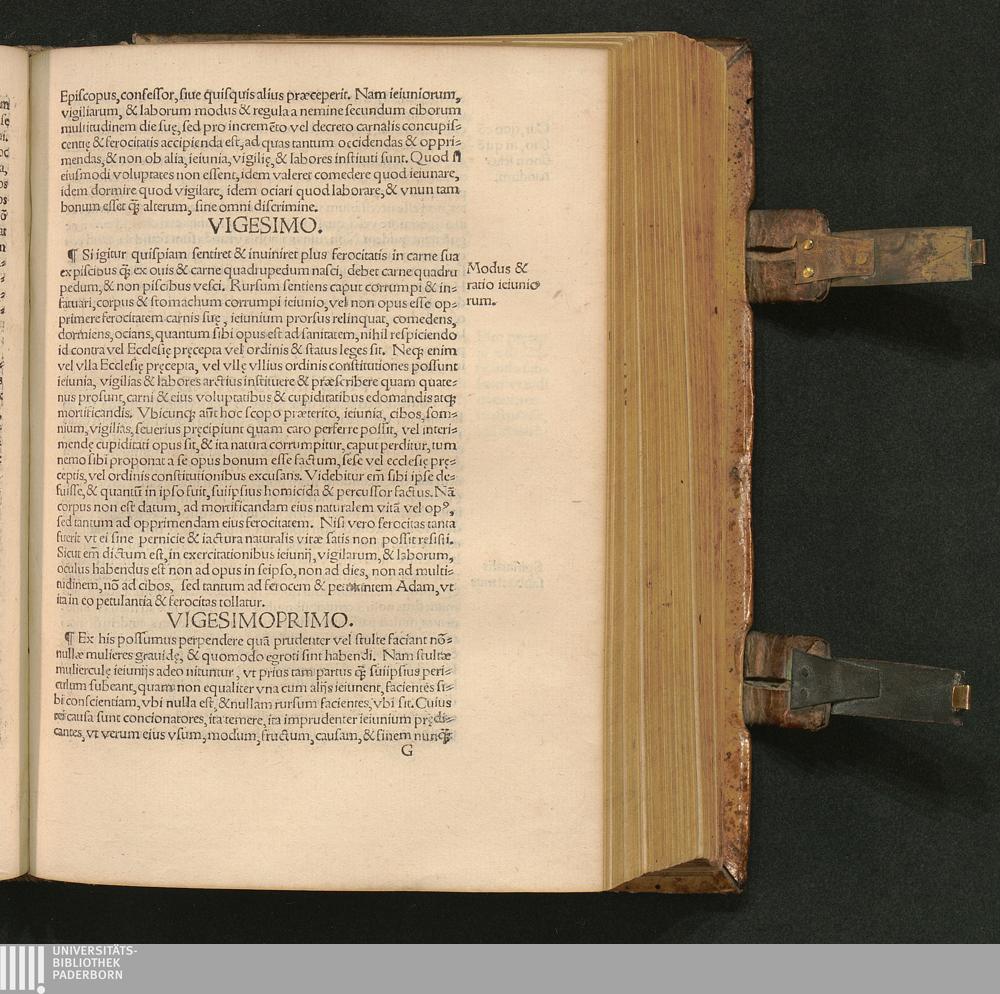 Episcopus, confessor, siue quisquis alius præceperit. Nam ieiuniorum,
vigiliarum, & laborum modus & regula a nemine secundum ciborum
multitudinem die suę, sed pro incremēto vel decreto carnalis concupis⸗
centię & ferocitatis accipienda est, ad quas tantum occidendas & oppri⸗
mendas, & non ob alia, ieiunia, vigilię, & labores instituti sunt. Quod si
eiusmodi voluptates non essent, idem valeret comedere quod ieiunare,
idem dormire quod vigilare, idem ociari quod laborare, & vnun tam
bonum esset q̃; alterum, sine omni discrimine.
VIGESIMO.
¶ Si igitur quispiam sentiret & inuiniret plus ferocitatis in carne sua
ex piscibus q̃; ex ouis & carne quadrupedum nasci, debet carne quadru
pedum, & non piscibus vesci. Rursum sentiens caput corrumpi & in⸗
fatuari, corpus & stomachum corrumpi ieiunio, vel non opus esse op⸗
primere ferocitatem carnis suę, ieiunium prorsus relinquat, comedens,
dormiens, ocians, quantum sibi opus est ad sanitatem, nihil respiciendo
id contra vel Ecclesię pręcepta vel ordinis & status leges sit. Neq; enim
vel vlla Ecclesię pręcepta, vel vllę vllius ordinis constitutiones possunt
ieiunia, vigilias & labores arctius instituere & præscribere quam quate⸗
nus prosunt, carni & eius voluptatibus & cupiditatibus edomandis atq;
mortificandis. Vbicunq; aūt hoc scopo præterito, ieiunia, cibos, som⸗
nium, vigilias, seuerius pręcipiunt quam caro perferre possit, vel interi⸗
mendę cupiditati opus sit, & ita natura corrumpitur, caput perditur, tum
nemo sibi proponat a se opus bonum esse factum, sese vel ecclesię prę⸗
ceptis, vel ordinis constitutionibus excusans. Videbitur em̄ sibi ipse de⸗
fuisse, & quantū in ipso fuit, suiipsius homicida & percussor factus. Nā
corpus non est datum, ad mortificandam eius naturalem vitā vel opꝰ,
sed tantum ad opprimendam eius ferocitatem. Nisi vero ferocitas tanta
fuerit vt ei sine pernicie & iactura naturalis vitæ satis non possit resisti.
Sicut em̄ dictum est, in exercitationibus ieiunij, vigilarum, & laborum,
oculus habendus est non ad opus in seipso, non ad dies, non ad multi⸗
tudinem, nō ad cibos, sed tantum ad ferocem & Adam, vt
ita in eo petulantia & ferocitas tollatur.
VIGESIMOPRIMO.
¶ Ex his possumus perpendere quā prudenter vel stulte faciant nō⸗
nullæ mulieres grauidę, & quomodo egroti sint habendi. Nam stultæ
mulierculę ieiunijs adeo nituntur, vt prius tam partus q̃; suiipsius peri⸗
culum subeant, quam non equaliter vna cum alijs ieiunent, facientes si⸗
bi conscientiam, vbi nulla est, & nullam rursum facientes, vbi sit. Cuius
rei causa sunt concionatores, ita temere, ita imprudenter ieiunium prędi⸗
cantes, vt verum eius vsum, modum, fructum, causam, & finem nunq̃;
G
Modus &
ratio ieiunio
rum.
UNIVERSITÄTS-
BIBLIOTHEK
PADERBORN